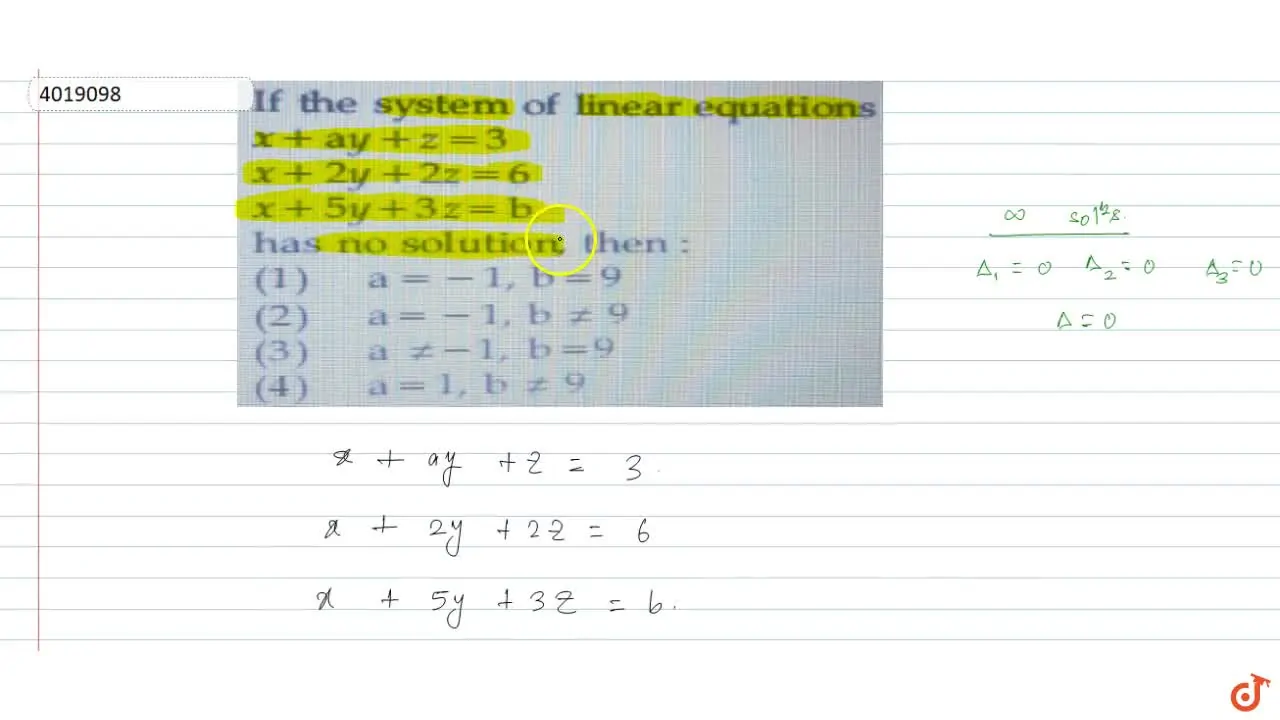 4019098
If the system of linear equations
x + ay + z = 3
x + 2y + 2z = 6
x + 5y + 3z = b
has no solution, then :
(1) a = − 1, b = 9
(2) a = − 1, b ≠ 9
(3) a ≠ − 1, b = 9
(4) a = 1, b ≠ 9
∞ solⁿs.
Δ₁ = 0 Δ₂ = 0 Δ₃ = 0
Δ = 0
x + ay + z = 3
x + 2y + 2z = 6
x + 5y + 3z = b.